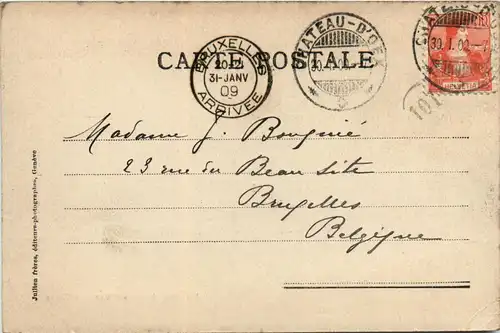 CARTE POSTALE
BRUXELLES
31-JANV
09
ARRIVÉE
CHATEAU-D'OEX
30.I.09
Madame J. Bougnié
23 rue du Beau Site
Bruxelles
Belgique
Jullien frères, éditeurs-photographes, Genève